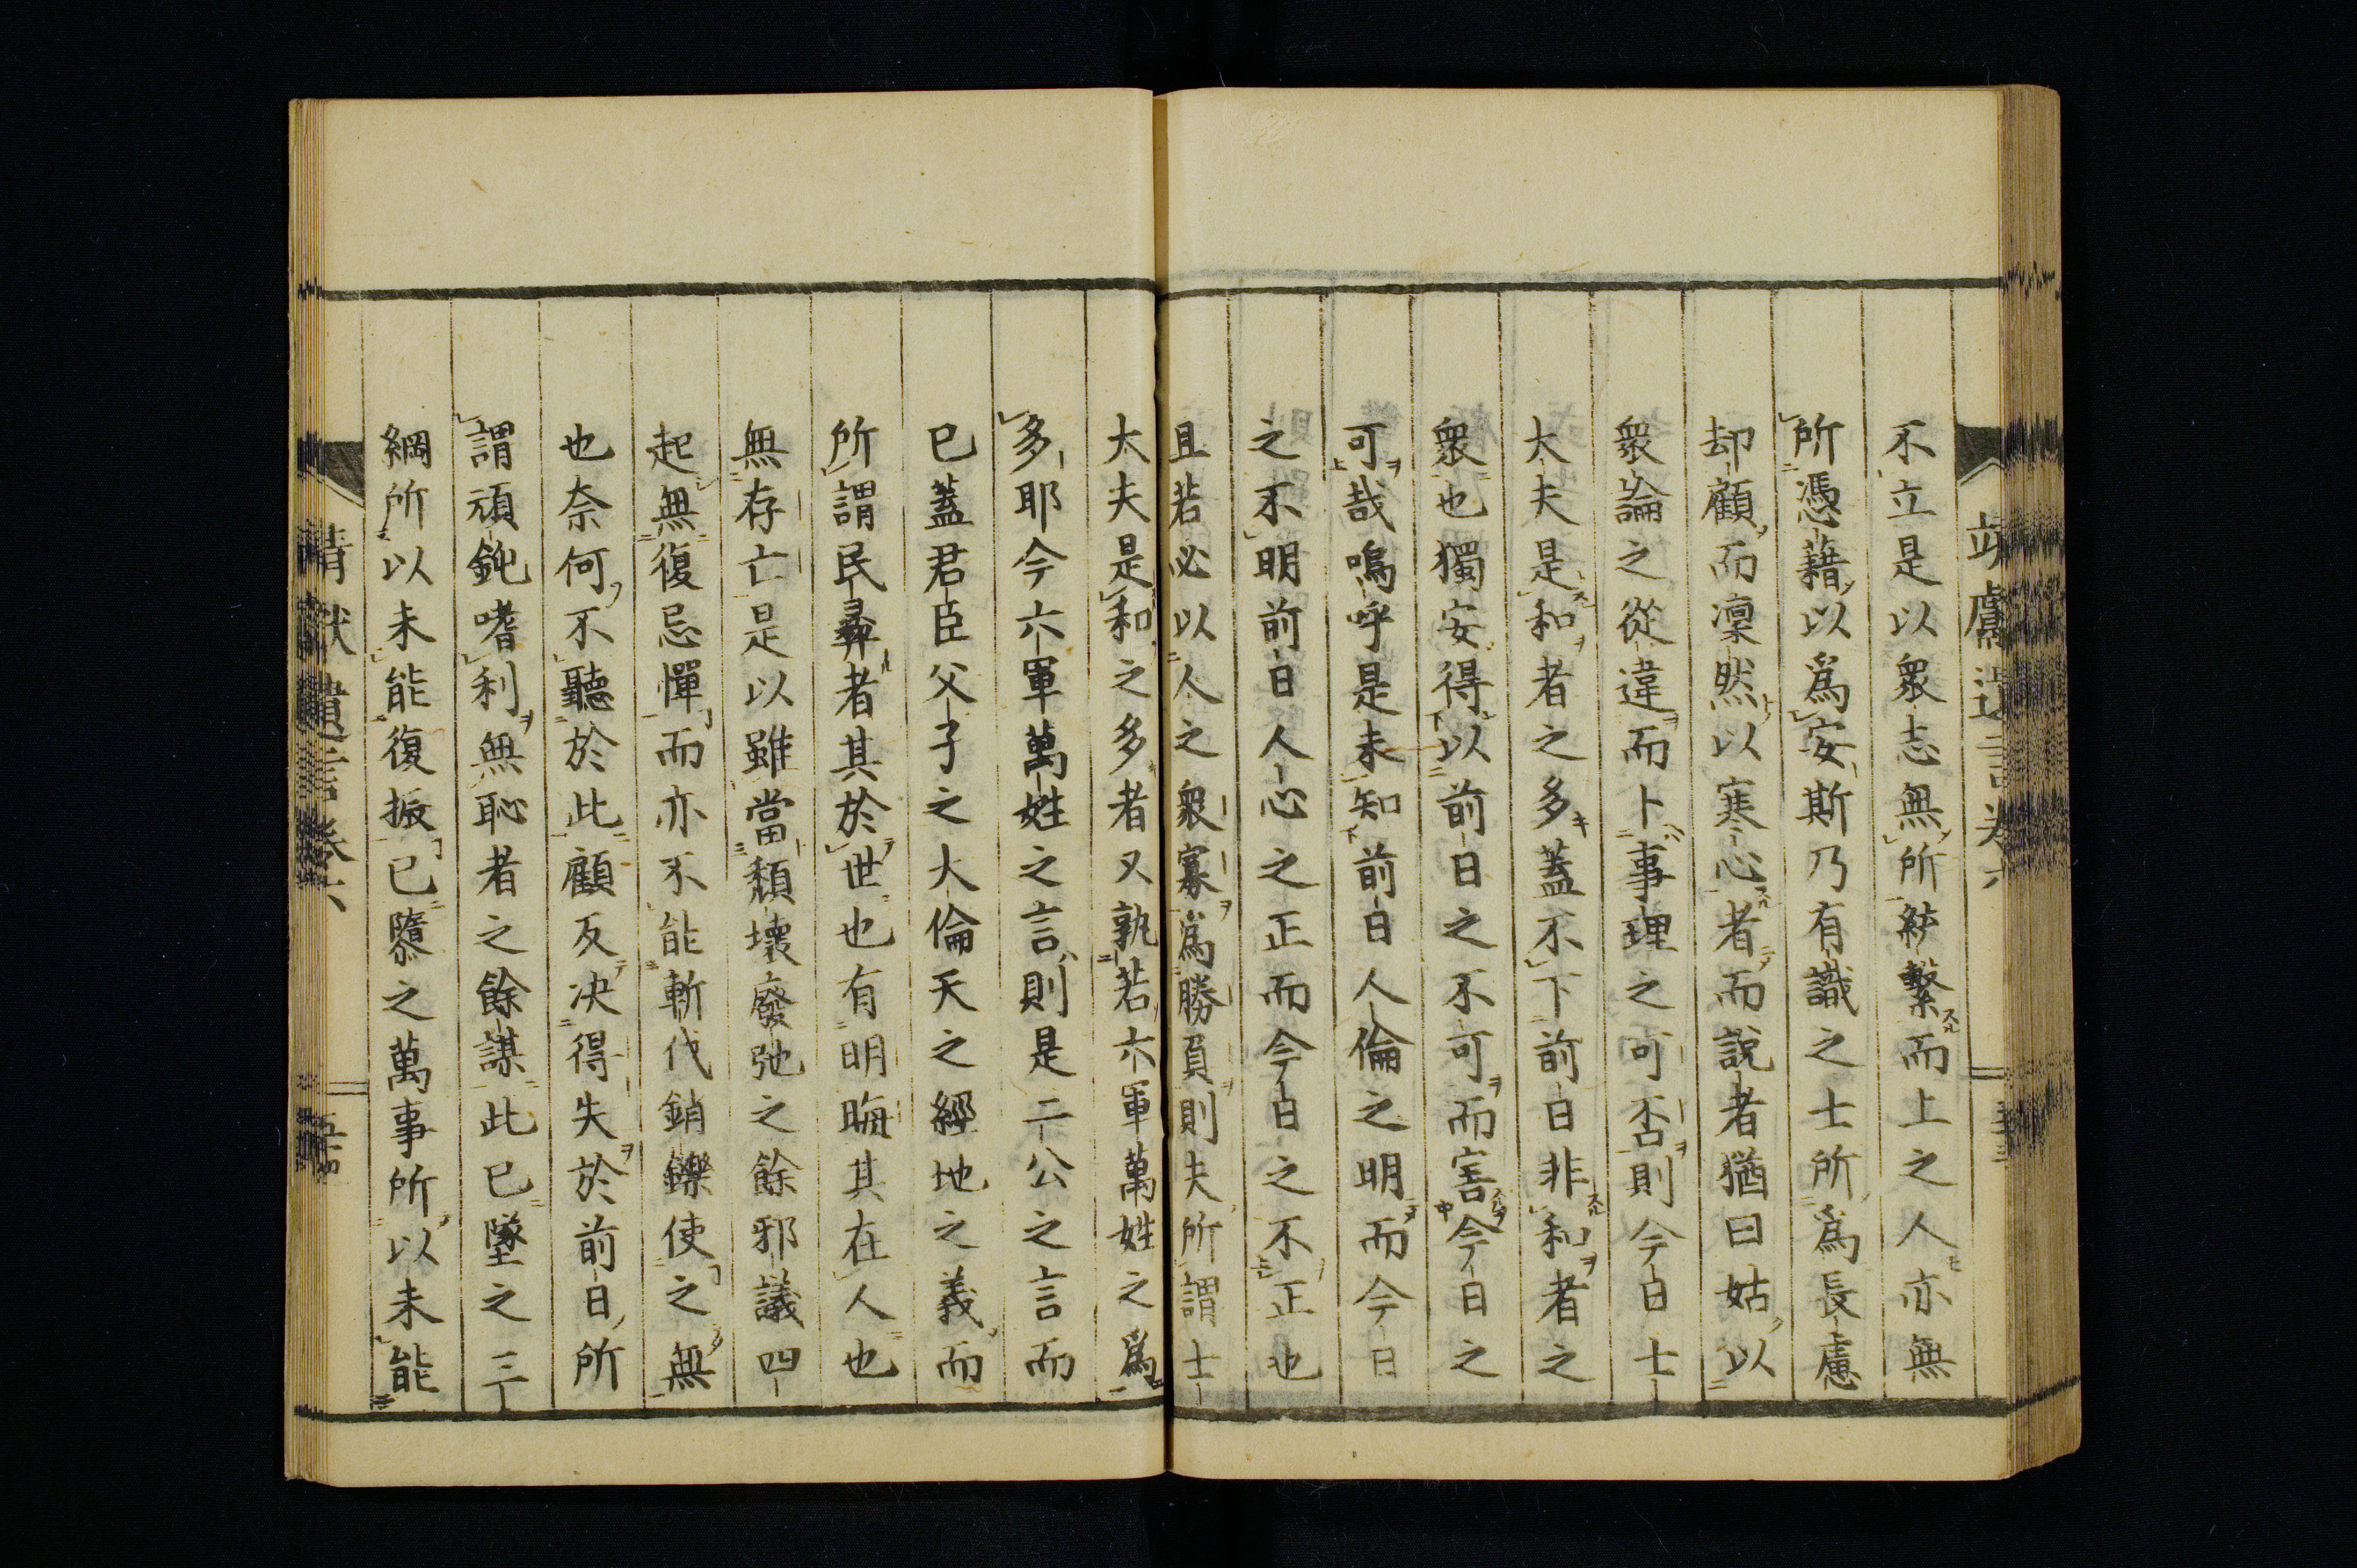 不立是以衆志無所統繫而上之人亦無
所憑藉以爲安斯乃有識之士所爲長慮
却顧而凜然以寒心者而說者猶曰姑以
衆論之從違而卜事理之可否則今日士
大夫是和者之多蓋不下前日非和者之
衆也獨安得以前日之不可而害今日之
可哉嗚呼是未知前日人倫之明而今日
之不明前日人心之正而今日之不正也
且若必以人之衆寡爲勝負則夫所謂士
大夫是和之多者又孰若六軍萬姓之爲
多耶今六軍萬姓之言則是二公之言而
已蓋君臣父子之大倫天之經地之義而
所謂民彛者其於世也有明晦其在人也
無存亡是以雖當頽壞廢弛之餘邪議四
起無復忌憚而亦不能斬伐銷鑠使之無
也奈何不聽於此顧反决得失於前日所
謂頑鈍嗜利無恥者之餘謀此已墜之三
綱所以未能復振已隳之萬事所以未能
靖獻遺言卷六